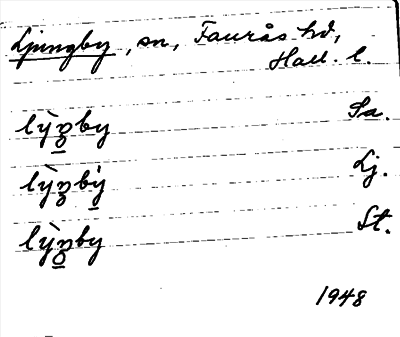 Ljungby, sn, Faurås hd,
Hall. l.
lỳŋby Sa.
lỳŋbý Lj.
lỳŋby St.
1948